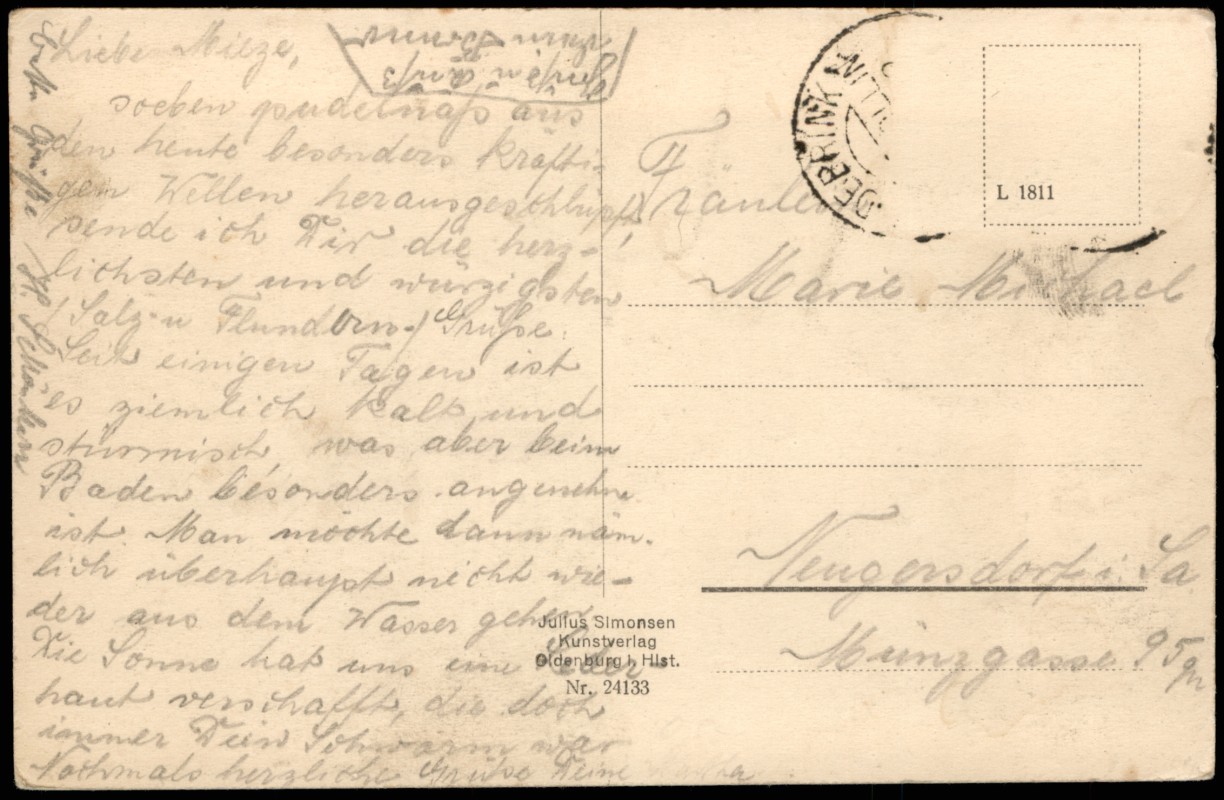 Liebe Mieze,
soeben pudelnaß aus
den heute besonders kräfti-
gen Wellen herausgeschlüpft,
sende ich Dir die herz-
lichsten und würzigsten
/Salz u Flundern-/ Grüße.
Seit einigen Tagen ist
es ziemlich kalt und
stürmisch, was aber beim
Baden besonders angenehm
ist. Man möchte dann näm-
lich überhaupt nicht wie-
der aus dem Wasser gehen.
Die Sonne hat uns eine Leder-
haut verschafft, die doch
immer Dein Schwarm war
Nochmals herzliche Grüße Deine
Grüße H.
Fräulein
Marie Michael
Neugersdorf i. Sa
Münzgasse 95
DEBRINK
L 1811
Julius Simonsen
Kunstverlag
Oldenburg i. Hlst.
Nr. 24133